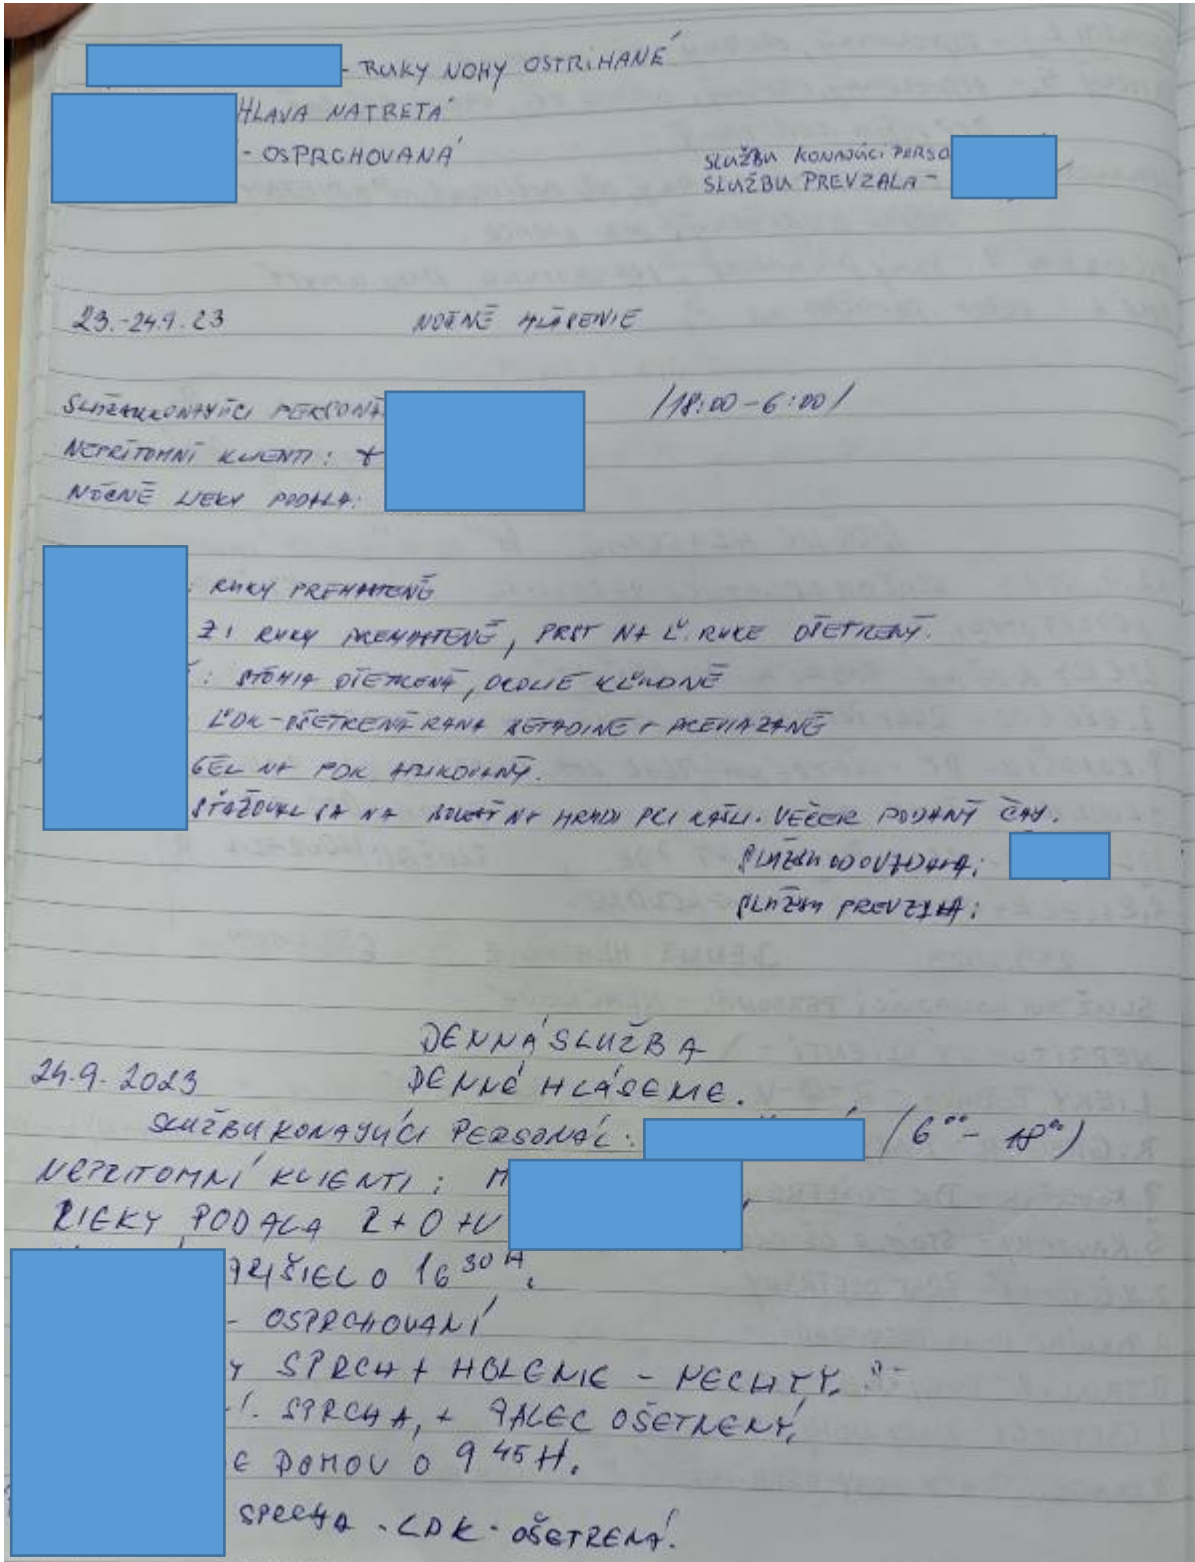 - RUKY NOHY OSTRIHANÉ
HLAVA NATRETÁ
- OSPRCHOVANÁ
SLUŽBU KONAJÚCI PERSO
SLUŽBU PREVZALA -
23.-24.9.23 NOČNÉ HLÁSENIE
SLUŽBUKONAJÚCI PERSONÁ /18:00-6:00/
NEPRÍTOMNÍ KLIENTI:
NOČNÉ LIEKY PODALA:
: RUKY PREMASTENÉ
Z: RUKY PREMASTENÉ, PRST NA Ľ. RUKE OŠETRENÝ.
: STÓMIA OŠETRENÁ, OKOLIE KĽUDNÉ
ĽDK-OŠETRENÁ RANA BETADINE + PREVIAZANÉ
GÉL NA PDK APLIKOVANÝ.
SŤAŽOVAL SA NA BOLESŤ NA HRUDI PRI KAŠLI. VEČER PODANÝ ČAJ.
SLUŽBU ODOVZDALA:
SLUŽBU PREVZALA:
DENNÁ SLUŽBA
24.9.2023 DENNÉ HLÁSENIE.
SLUŽBUKONAJÚCI PERSONÁL: (6⁰⁰-18⁰⁰)
NEPRITOMNÍ KLIENTI: M
LIEKY PODALA R+O+V
PRIŠIEL O 16³⁰H.
- OSPRCHOVANÍ
Y SPRCH + HOLENIE - NECHTY.
SPRCHA, + PALEC OŠETRENÝ,
E DOMOV O 9⁴⁵H.
SPRCHA - ĽDK - OŠETRENÁ.